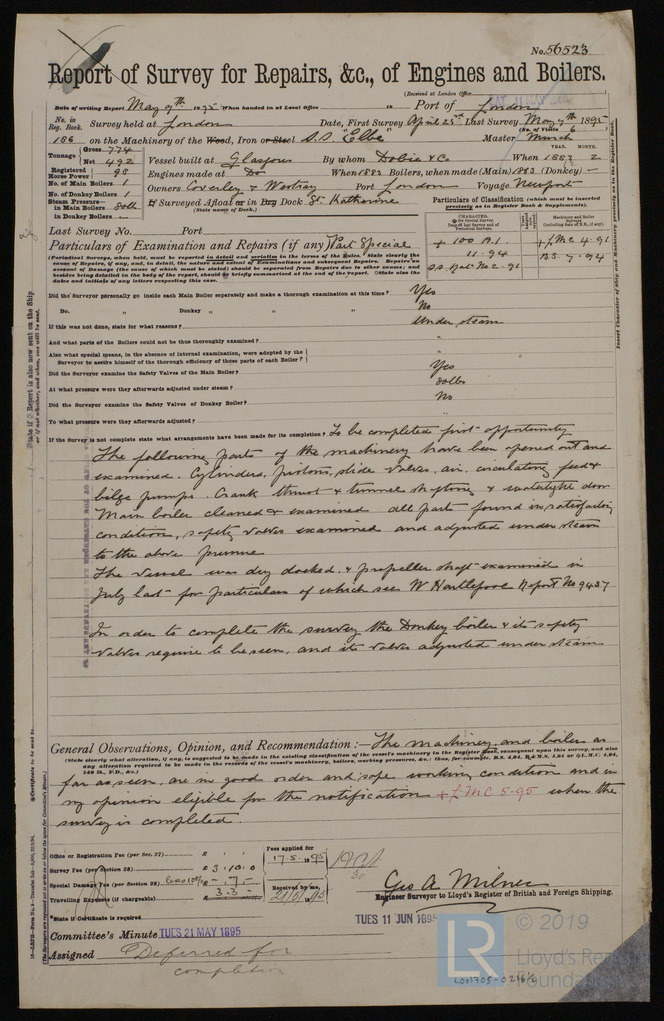 No. 56523
Report of Survey for Repairs, &c., of Engines and Boilers.
(Received at London Office
Date of writing Report May 9th 1895 When handed in at Local Office 18 Port of London
No. in Reg. Book. Survey held at London Date, First Survey April 25th Last Survey May 7th 1895
(No. of Visits 6
186 on the Machinery of the Wood, Iron or Steel S.S. "Elbe" Master
Tonnage Gross 774 Net 492 Vessel built at Glasgow By whom Dobie & Co When 1882 2
YEAR. MONTH.
Registered Horse Power 98 Engines made at Do When 1882 Boilers, when made (Main) 1883 (Donkey) –
No. of Main Boilers 1
No. of Donkey Boilers 1 Owners Coverley & Westray Port London Voyage Newport
Steam Pressure in Main Boilers 80lb
in Donkey Boilers –
If Surveyed Afloat or in Dry Dock St Katharine
(State name of Dock.)
Particulars of Classification (which must be inserted precisely as in Register Book & Supplements).
+ 100 A.1.
11.94
S.S. No 2-91
+ LMC 4-91
B.S. 7-94
Last Survey No. Port
Particulars of Examination and Repairs (if any) Part Special
(Periodical Surveys, when held, must be reported in detail and seriatim in the terms of the Rules. State clearly the
cause of Repairs, if any, and, in detail, the nature and extent of Examinations and subsequent Repairs. Repairs on
account of Damage (the cause of which must be stated) should be separated from Repairs due to other causes; and
besides being detailed in the body of the report, should be briefly summarised at the end of the report. State also the
dates and initials of any letters respecting this case.
Did the Surveyor personally go inside each Main Boiler separately and make a thorough examination at this time? Yes
Do. " Donkey " " " No
If this was not done, state for what reasons? Under steam
And what parts of the Boilers could not be thus thoroughly examined? "
Also what special means, in the absence of internal examination, were adopted by the
Surveyor to assure himself of the thorough efficiency of those parts of each Boiler? "
Did the Surveyor examine the Safety Valves of the Main Boiler? Yes
At what pressure were they afterwards adjusted under steam? 80lbs
Did the Surveyor examine the Safety Valves of Donkey Boiler? No
To what pressure were they afterwards adjusted?
If the Survey is not complete state what arrangements have been made for its completion? To be completed first opportunity
The following parts of the machinery have been opened out and
examined. Cylinders, pistons, slide valves, air, circulating, feed &
bilge pumps. Crank thrust & tunnel shafting & watertight door
Main boiler cleaned & examined all parts found in satisfactory
condition, safety valves examined and adjusted under steam
to the above pressure
The vessel was dry docked & propeller shaft examined in
July last for particulars of which see W Hartlepool Report No 9437
In order to complete the survey the Donkey boiler & its safety
valves require to be seen, and its valves adjusted under steam
General Observations, Opinion, and Recommendation:— The machinery and boilers as
(State clearly what alteration, if any, is suggested to be made in the existing classification of the vessel's machinery in the Register Book, consequent upon this survey, and also
any alteration required to be made in the records of the vessel's machinery, boilers, working pressures, &c.;
far as seen, are in good order and safe working condition and in
my opinion eligible for the notification + LMC 5-95 when the
survey is completed.
Office or Registration Fee (per Sec. 27) £ : :
Survey Fee (per Section 28) £ 3 . 10 . 0
Special Damage Fee (per Section 28) less 10% £ – . 7 . –
Travelling Expenses (if chargeable) 3 . 3 . –
Fees applied for
17.5.1895
Received by me,
*State if Certificate is required
Geo A Milner
Engineer Surveyor to Lloyd's Register of British and Foreign Shipping.
Committee's Minute TUES 21 MAY 1895
TUES 11 JUN 1895
Assigned Deferred for
completion
© 2019
Lloyd's Register
Foundation
LR
LON705-0216½